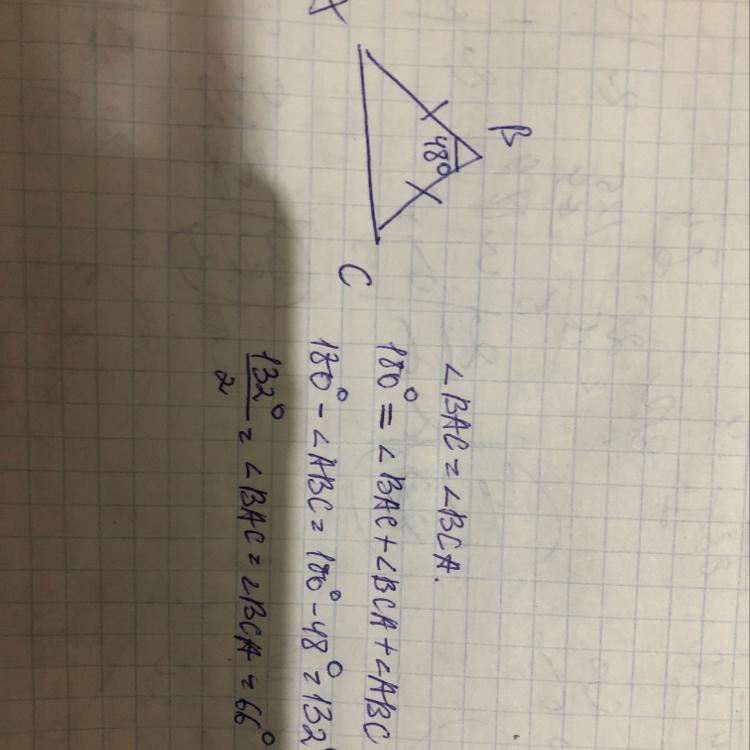 A
B
48°
C
∠BAC = ∠BCA.
180° = ∠BAC + ∠BCA + ∠ABC
180° - ∠ABC = 180° - 48° = 132°
132°/2 = ∠BAC = ∠BCA = 66°